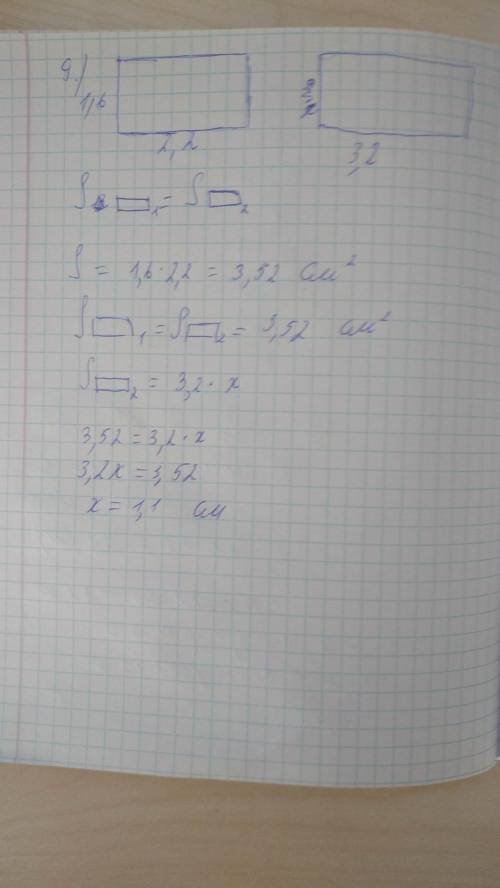 9.)
1,6
2,2
3,2
S ▭₁ = S ▭₂
S = 1,6 · 2,2 = 3,52 см²
S ▭₁ = S ▭₂ = 3,52 см²
S ▭₂ = 3,2 · x
3,52 = 3,2 · x
3,2x = 3,52
x = 1,1 см